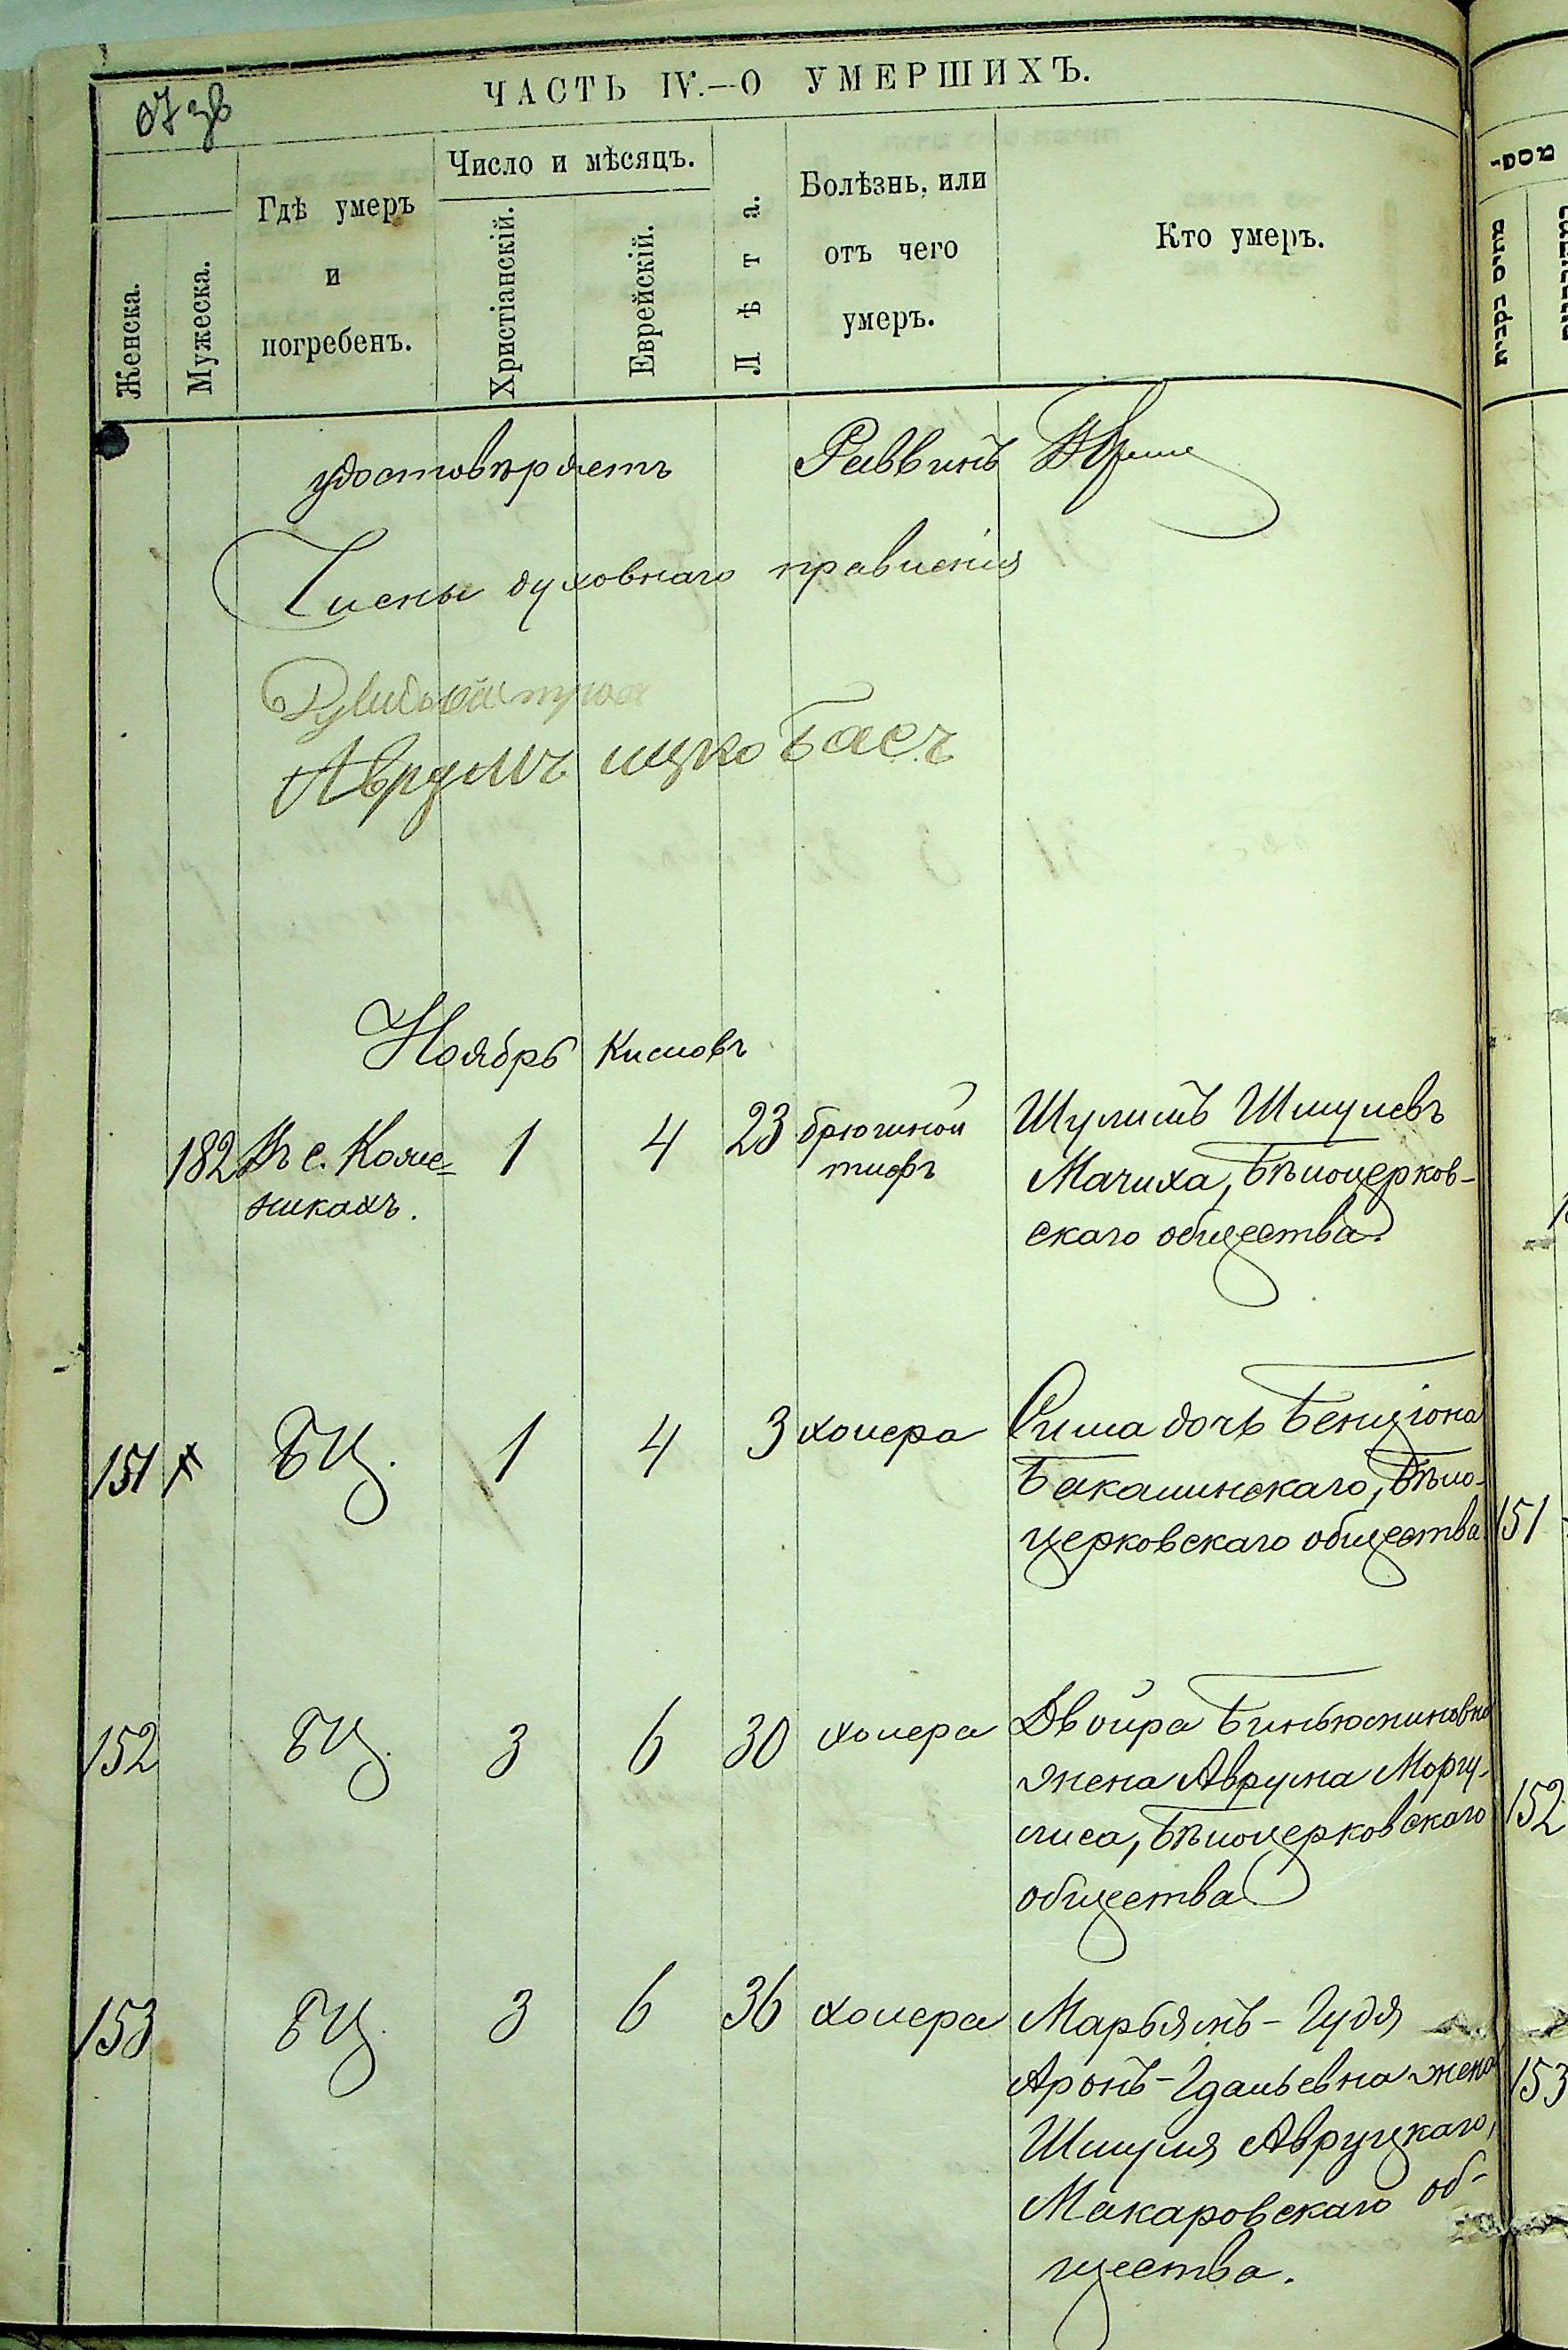 ЧАСТЬ IV.—О УМЕРШИХЪ.
Женска.
Мужеска.
Гдѣ умеръ
и
погребенъ.
Число и мѣсяцъ.
Христіанскій.
Еврейскій.
Лѣта.
Болѣзнь, или
отъ чего
умеръ.
Кто умеръ.
удостовѣряетъ Раввинъ
Члены духовнаго правленія
Аврумъ ицко Басъ
Ноябрь Кисловъ
182 Въ с. 1 4 23 брюшной Шулимъ Шмулевъ
никахъ. тифъ Мачиха, Бѣлоцерков-
скаго общества.
151 БЦ. 1 4 3 холера Сима дочь Бенціона
Бакалинскаго, Бѣло-
церковскаго общества
151
152 БЦ. 3 6 30 холера Двойра Биньюминовна
жена Аврума Моргу-
лиса, Бѣлоцерковскаго
общества
152
153 БЦ. 3 6 36 холера Марьямъ-Гудя
Аронъ-Гдальевна жена
Шмуля Авруцкаго,
Макаровскаго об-
щества.
153